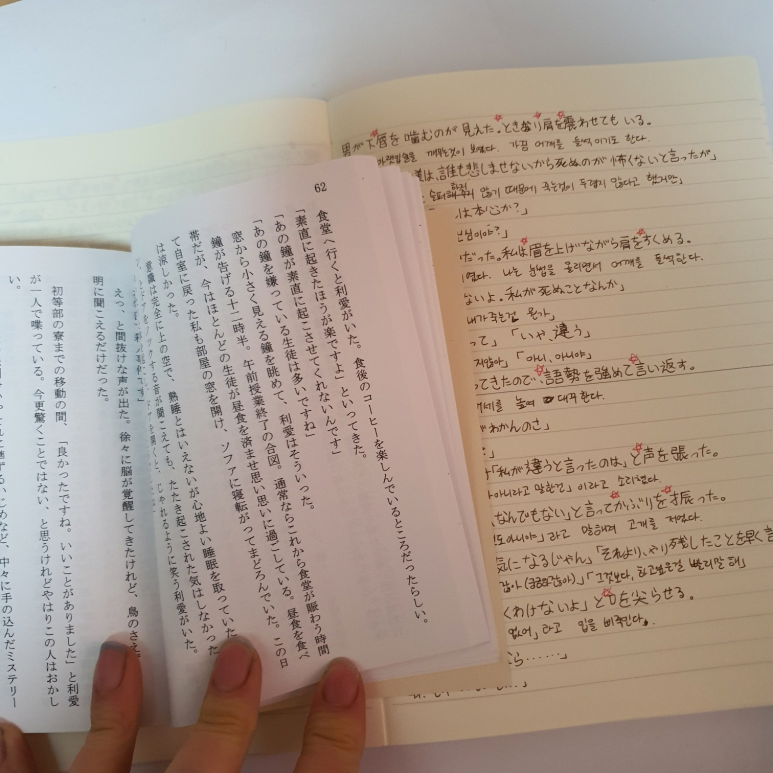 62
食堂へ行くと利愛がいた。食後のコーヒーを楽しんでいるところだったらしい。
「素直に起きたほうが楽ですよ」といってきた。
「あの鐘が素直に起こさせてくれないんです」
「あの鐘を嫌っている生徒は多いですね」
窓から小さく見える鐘を眺めて、利愛はそういった。
鐘が告げる十二時半。午前授業終了の合図。通常ならこれから食堂が賑わう時間
帯だが、今はほとんどの生徒が昼食を済ませ思い思いに過ごしている。昼食を食べ
て自室に戻った私も部屋の窓を開け、ソファに寝転がってまどろんでいた。この日
は涼しかった。
意識は完全に上の空で、熟睡とはいえないが心地よい睡眠を取っていた
ノックする音が聞こえても、たたき起こされた気はしなかった
を開くと、じゃれるように笑う利愛がいた。
えっ、と間抜けな声が出た。徐々に脳が覚醒してきたけれど、鳥のさえ
明に聞こえるだけだった。
初等部の寮までの移動の間、「良かったですね。いいことがありました」と利愛
が一人で喋っている。今更驚くことではない、と思うけれどやはりこの人はおかし
い。
など、中々に手の込んだミステリー
男が下唇を噛むのが見えた。ときおり肩を震わせてもいる。
아랫입술을 깨무는것이 보였다. 가끔 어깨를 들썩이기도 한다.
は、誰も悲しませないから死ぬのが怖くないと言ったが」
않기 때문에 죽는것이 두렵지 않다고 했지만」
は本心か?」
심이야?」
だった。私は眉を上げながら肩をすくめる。
였다. 나는 눈썹을 올리면서 어깨를 들썩한다.
ないよ。私が死ぬことなんか」
내가 죽는걸 뭔가」
って」「いや、違う」
지않아」「아니, 아니야」
ってきたので、語勢を強めて言い返す。
세를 높여 대꾸한다.
がわかんのさ」
「私が違うと言ったのは」と声を張った。
아니라고 말한건」이라고 소리쳤다.
なんでもない」と言ってかぶりを振った。
도아니야」라고 말하며 고개를 저었다.
気になるじゃん」「それより、やり残したことを早く言
「그것보다, 하고싶은걸 빨리말해」
くわけないよ」と口を尖らせる。
없어」라고 입을 삐죽인다.
ら……」